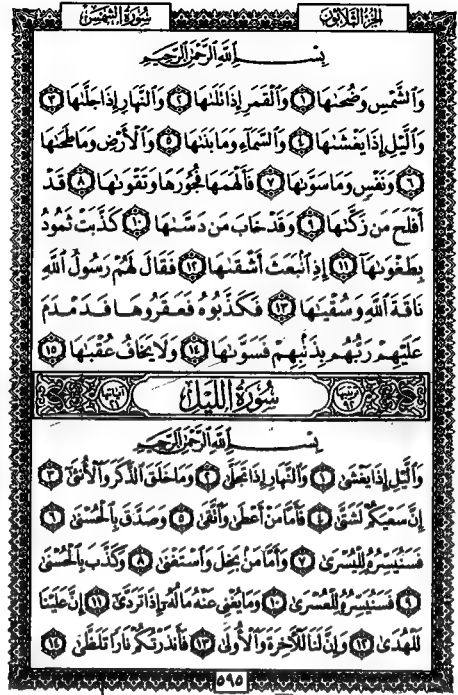 سُورَةُ الشَّمْسِ
الجُزْءُ الثَّلَاثُونَ
بِسْمِ اللَّهِ الرَّحْمَٰنِ الرَّحِيمِ
وَالشَّمْسِ وَضُحَىٰهَا ١ وَالْقَمَرِ إِذَا تَلَىٰهَا ٢ وَالنَّهَارِ إِذَا جَلَّىٰهَا ٣
وَاللَّيْلِ إِذَا يَغْشَىٰهَا ٤ وَالسَّمَاءِ وَمَا بَنَىٰهَا ٥ وَالْأَرْضِ وَمَا طَحَىٰهَا
٦ وَنَفْسٍ وَمَا سَوَّىٰهَا ٧ فَأَلْهَمَهَا فُجُورَهَا وَتَقْوَىٰهَا ٨ قَدْ
أَفْلَحَ مَن زَكَّىٰهَا ٩ وَقَدْ خَابَ مَن دَسَّىٰهَا ١٠ كَذَّبَتْ ثَمُودُ
بِطَغْوَىٰهَا ١١ إِذِ انۢبَعَثَ أَشْقَىٰهَا ١٢ فَقَالَ لَهُمْ رَسُولُ اللَّهِ
نَاقَةَ اللَّهِ وَسُقْيَىٰهَا ١٣ فَكَذَّبُوهُ فَعَقَرُوهَا فَدَمْدَمَ
عَلَيْهِمْ رَبُّهُم بِذَنۢبِهِمْ فَسَوَّىٰهَا ١٤ وَلَا يَخَافُ عُقْبَىٰهَا ١٥
سُورَةُ اللَّيْلِ
بِسْمِ اللَّهِ الرَّحْمَٰنِ الرَّحِيمِ
وَاللَّيْلِ إِذَا يَغْشَىٰ ١ وَالنَّهَارِ إِذَا تَجَلَّىٰ ٢ وَمَا خَلَقَ الذَّكَرَ وَالْأُنثَىٰ ٣
إِنَّ سَعْيَكُمْ لَشَتَّىٰ ٤ فَأَمَّا مَنْ أَعْطَىٰ وَاتَّقَىٰ ٥ وَصَدَّقَ بِالْحُسْنَىٰ ٦
فَسَنُيَسِّرُهُ لِلْيُسْرَىٰ ٧ وَأَمَّا مَنۢ بَخِلَ وَاسْتَغْنَىٰ ٨ وَكَذَّبَ بِالْحُسْنَىٰ
٩ فَسَنُيَسِّرُهُ لِلْعُسْرَىٰ ١٠ وَمَا يُغْنِي عَنْهُ مَالُهُ إِذَا تَرَدَّىٰ ١١ إِنَّ عَلَيْنَا
لَلْهُدَىٰ ١٢ وَإِنَّ لَنَا لَلْآخِرَةَ وَالْأُولَىٰ ١٣ فَأَنذَرْتُكُمْ نَارًا تَلَظَّىٰ ١٤
٥٩٥